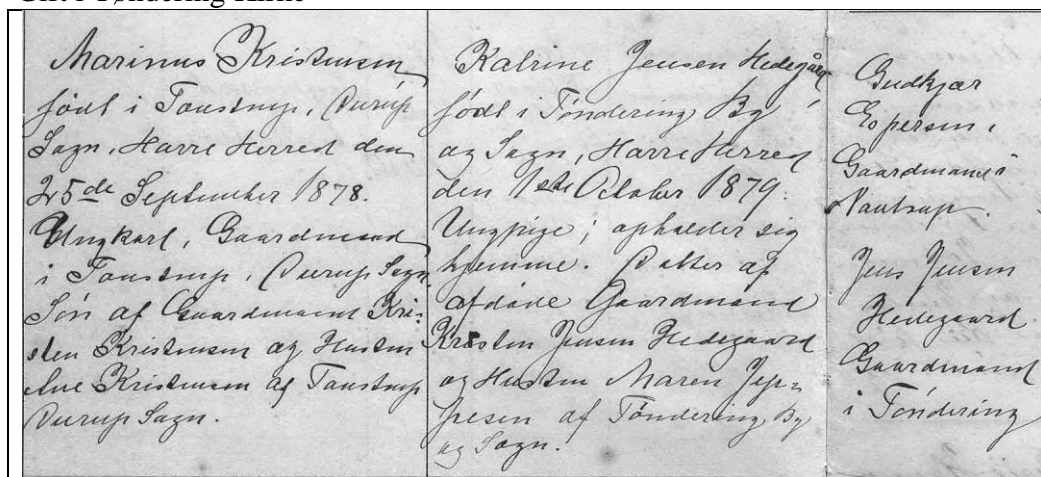 Gift i Tøndering Kirke
Marinus Kristensen
født i Taustrup, Durup
Sogn, Harre Herred den
25de September 1878.
Ungkarl, Gaardmand
i Taustrup, Durup Sogn.
Søn af Gaardmand Kri-
sten Kristensen og Hustru
Ane Kristensen af Taustrup
Durup Sogn.
Katrine Jensen Hedegård
født i Tøndering By
og Sogn, Harre Herred
den 1ste October 1879.
Ungpige; opholder sig
hjemme. Datter af
afdøde Gaardmand
Kresten Jensen Hedegaard
og Hustru Maren Jep-
pesen af Tøndering By
og Sogn.
Gudkjær
Espersen,
Gaardmand i
Nautrup.
Jens Jensen
Hedegaard
Gaardmand
i Tøndering